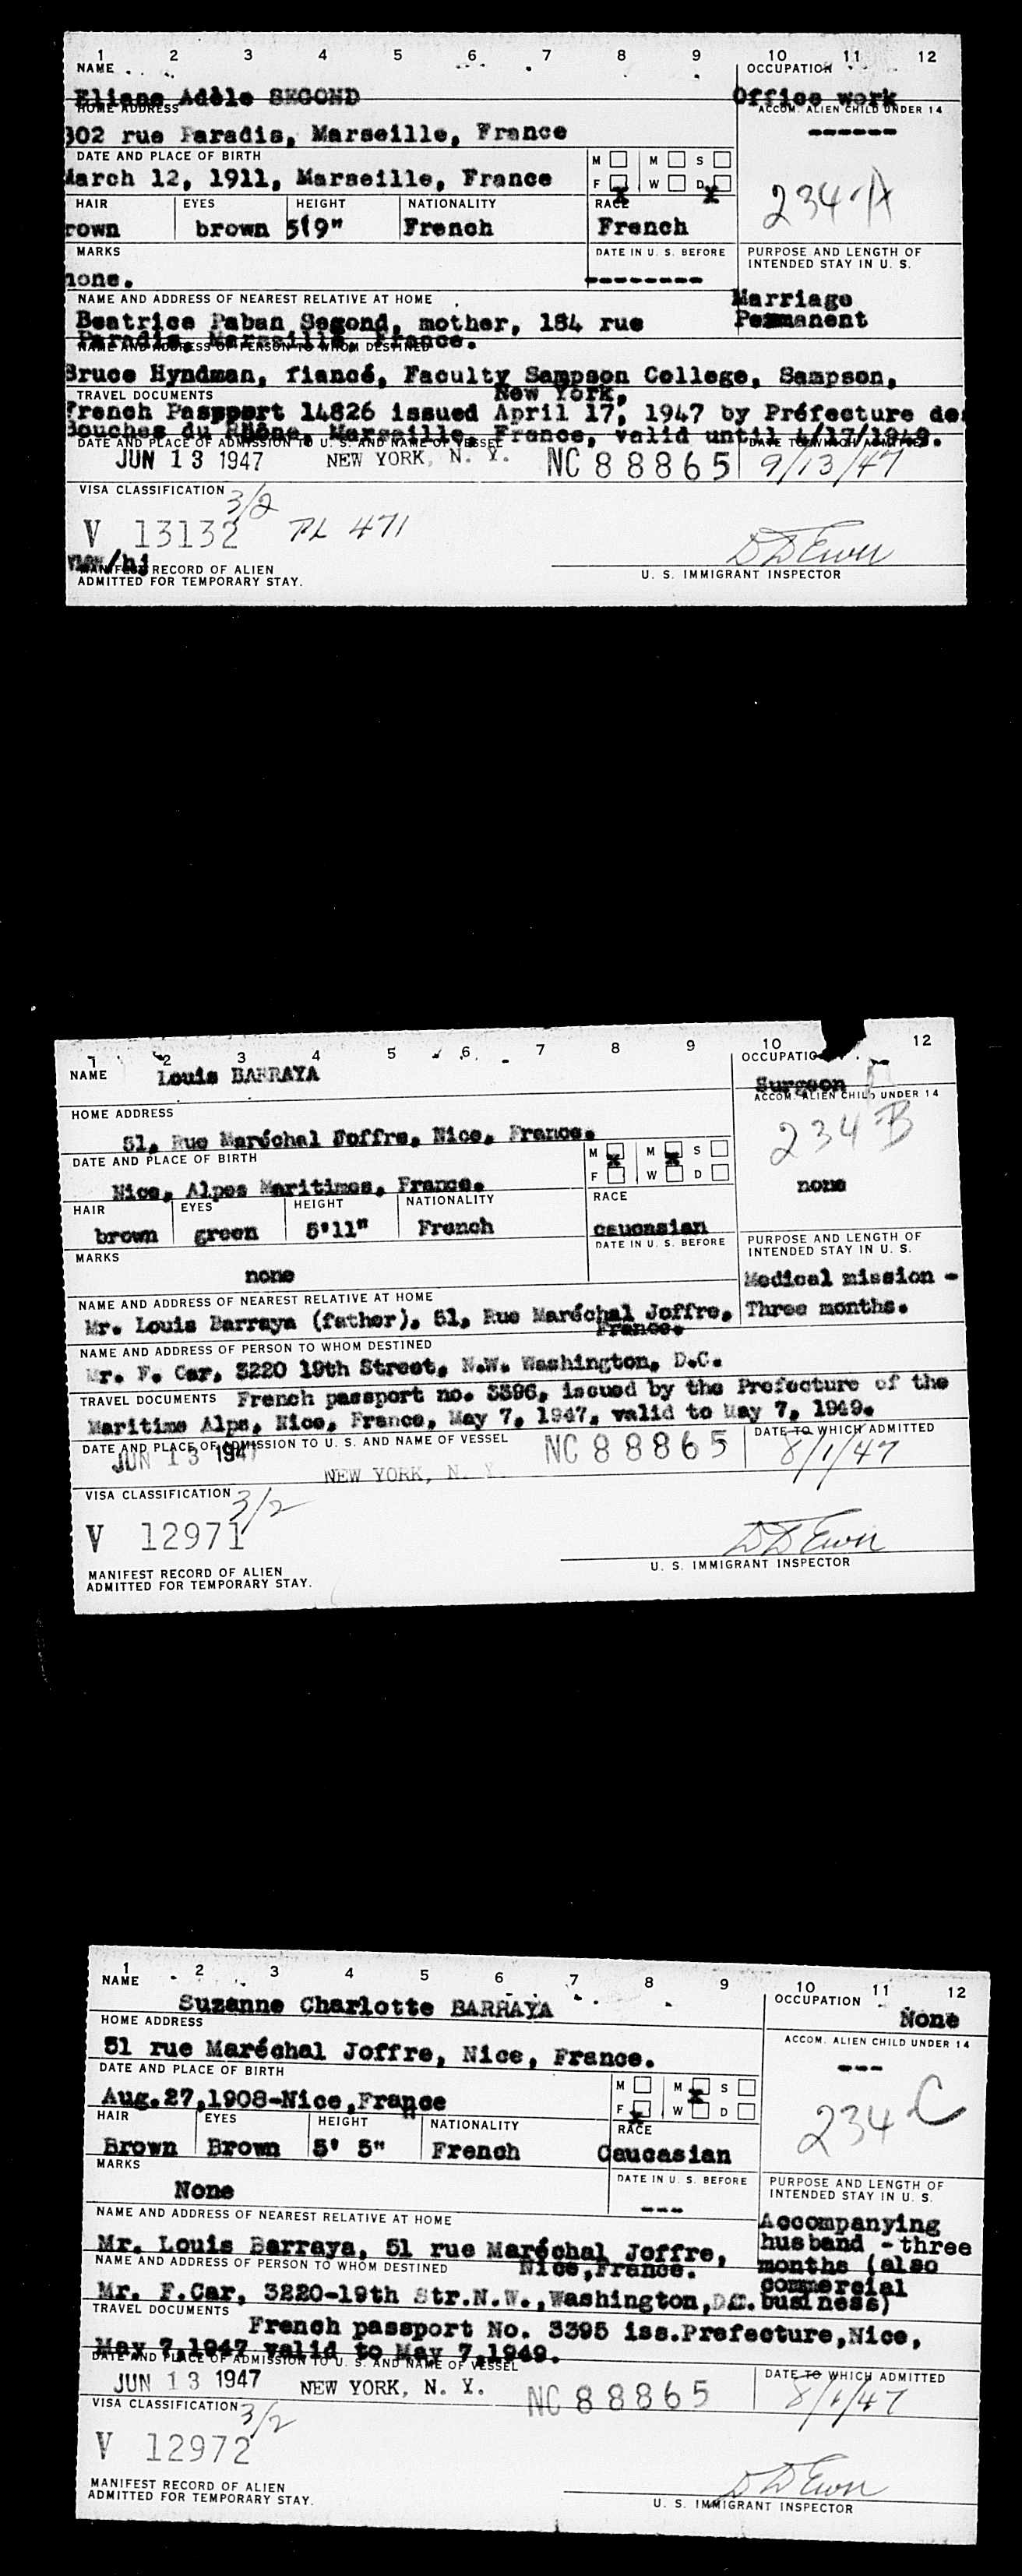 1 2 3 4 5 6 7 8 9 10 11 12
NAME OCCUPATION
Eliane Adèle SEGOND Office work
HOME ADDRESS ACCOM. ALIEN CHILD UNDER 14
302 rue Paradis, Marseille, France ------
DATE AND PLACE OF BIRTH M M S
March 12, 1911, Marseille, France F X W D X
234-A
HAIR EYES HEIGHT NATIONALITY RACE
rown brown 5'9" French French
MARKS DATE IN U. S. BEFORE PURPOSE AND LENGTH OF INTENDED STAY IN U. S.
none. --------
NAME AND ADDRESS OF NEAREST RELATIVE AT HOME Marriage
Beatrice Paban Segond, mother, 184 rue Permanent
Paradis, Marseille, France.
NAME AND ADDRESS OF PERSON TO WHOM DESTINED
Bruce Hyndman, fiancé, Faculty Sampson College, Sampson,
New York,
TRAVEL DOCUMENTS
French Passport 14826 issued April 17, 1947 by Préfecture des
Bouches du Rhône, Marseille, France, valid until 4/17/1949.
DATE AND PLACE OF ADMISSION TO U. S. AND NAME OF VESSEL DATE TO WHICH ADMITTED
JUN 13 1947 NEW YORK, N. Y. NC 88865 9/13/47
VISA CLASSIFICATION 3/2
V 13132 PL 471
/hj D D Ewer
MANIFEST RECORD OF ALIEN
ADMITTED FOR TEMPORARY STAY.
U. S. IMMIGRANT INSPECTOR
1 2 3 4 5 6 7 8 9 10 12
NAME Louis BARRAYA OCCUPATIO
Surgeon
HOME ADDRESS ACCOM. ALIEN CHILD UNDER 14
51, Rue Maréchal Foffre, Nice, France. 234 B
DATE AND PLACE OF BIRTH M X M X S
Nice, Alpes Maritimes, France. F W D none
HAIR EYES HEIGHT NATIONALITY RACE
brown green 5'11" French caucasian
MARKS DATE IN U. S. BEFORE PURPOSE AND LENGTH OF INTENDED STAY IN U. S.
none Medical mission -
NAME AND ADDRESS OF NEAREST RELATIVE AT HOME Three months.
Mr. Louis Barraya (father), 51, Rue Maréchal Joffre,
France.
NAME AND ADDRESS OF PERSON TO WHOM DESTINED
Mr. F. Car, 3220 19th Street, N.W. Washington, D.C.
TRAVEL DOCUMENTS French passport no. 3396, issued by the Prefecture of the
Maritime Alps, Nice, France, May 7, 1947, valid to May 7, 1949.
DATE AND PLACE OF ADMISSION TO U. S. AND NAME OF VESSEL DATE TO WHICH ADMITTED
JUN 13 1947 NEW YORK, N. Y. NC 88865 8/1/47
VISA CLASSIFICATION 3/2
V 12971 D D Ewer
MANIFEST RECORD OF ALIEN
ADMITTED FOR TEMPORARY STAY.
U. S. IMMIGRANT INSPECTOR
1 2 3 4 5 6 7 8 9 10 11 12
NAME OCCUPATION
Suzanne Charlotte BARRAYA None
HOME ADDRESS ACCOM. ALIEN CHILD UNDER 14
51 rue Maréchal Joffre, Nice, France. ---
DATE AND PLACE OF BIRTH M M X S
Aug.27,1908-Nice,France F X W D
234 C
HAIR EYES HEIGHT NATIONALITY RACE
Brown Brown 5' 5" French Caucasian
MARKS DATE IN U. S. BEFORE PURPOSE AND LENGTH OF INTENDED STAY IN U. S.
None ---
NAME AND ADDRESS OF NEAREST RELATIVE AT HOME Accompanying
Mr. Louis Barraya, 51 rue Maréchal Joffre, husband - three
Nice,France. months (also
NAME AND ADDRESS OF PERSON TO WHOM DESTINED commercial
Mr. F.Car, 3220-19th Str.N.W.,Washington,D.C. business)
TRAVEL DOCUMENTS
French passport No. 3395 iss.Prefecture,Nice,
May 7,1947 valid to May 7,1949.
DATE AND PLACE OF ADMISSION TO U. S. AND NAME OF VESSEL DATE TO WHICH ADMITTED
JUN 13 1947 NEW YORK, N. Y. NC 88865 8/1/47
VISA CLASSIFICATION 3/2
V 12972 D D Ewer
MANIFEST RECORD OF ALIEN
ADMITTED FOR TEMPORARY STAY.
U. S. IMMIGRANT INSPECTOR